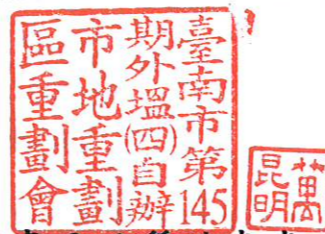 臺南市第145
期外塭(四)自辦
市地重劃
區重劃會
萬
昆明